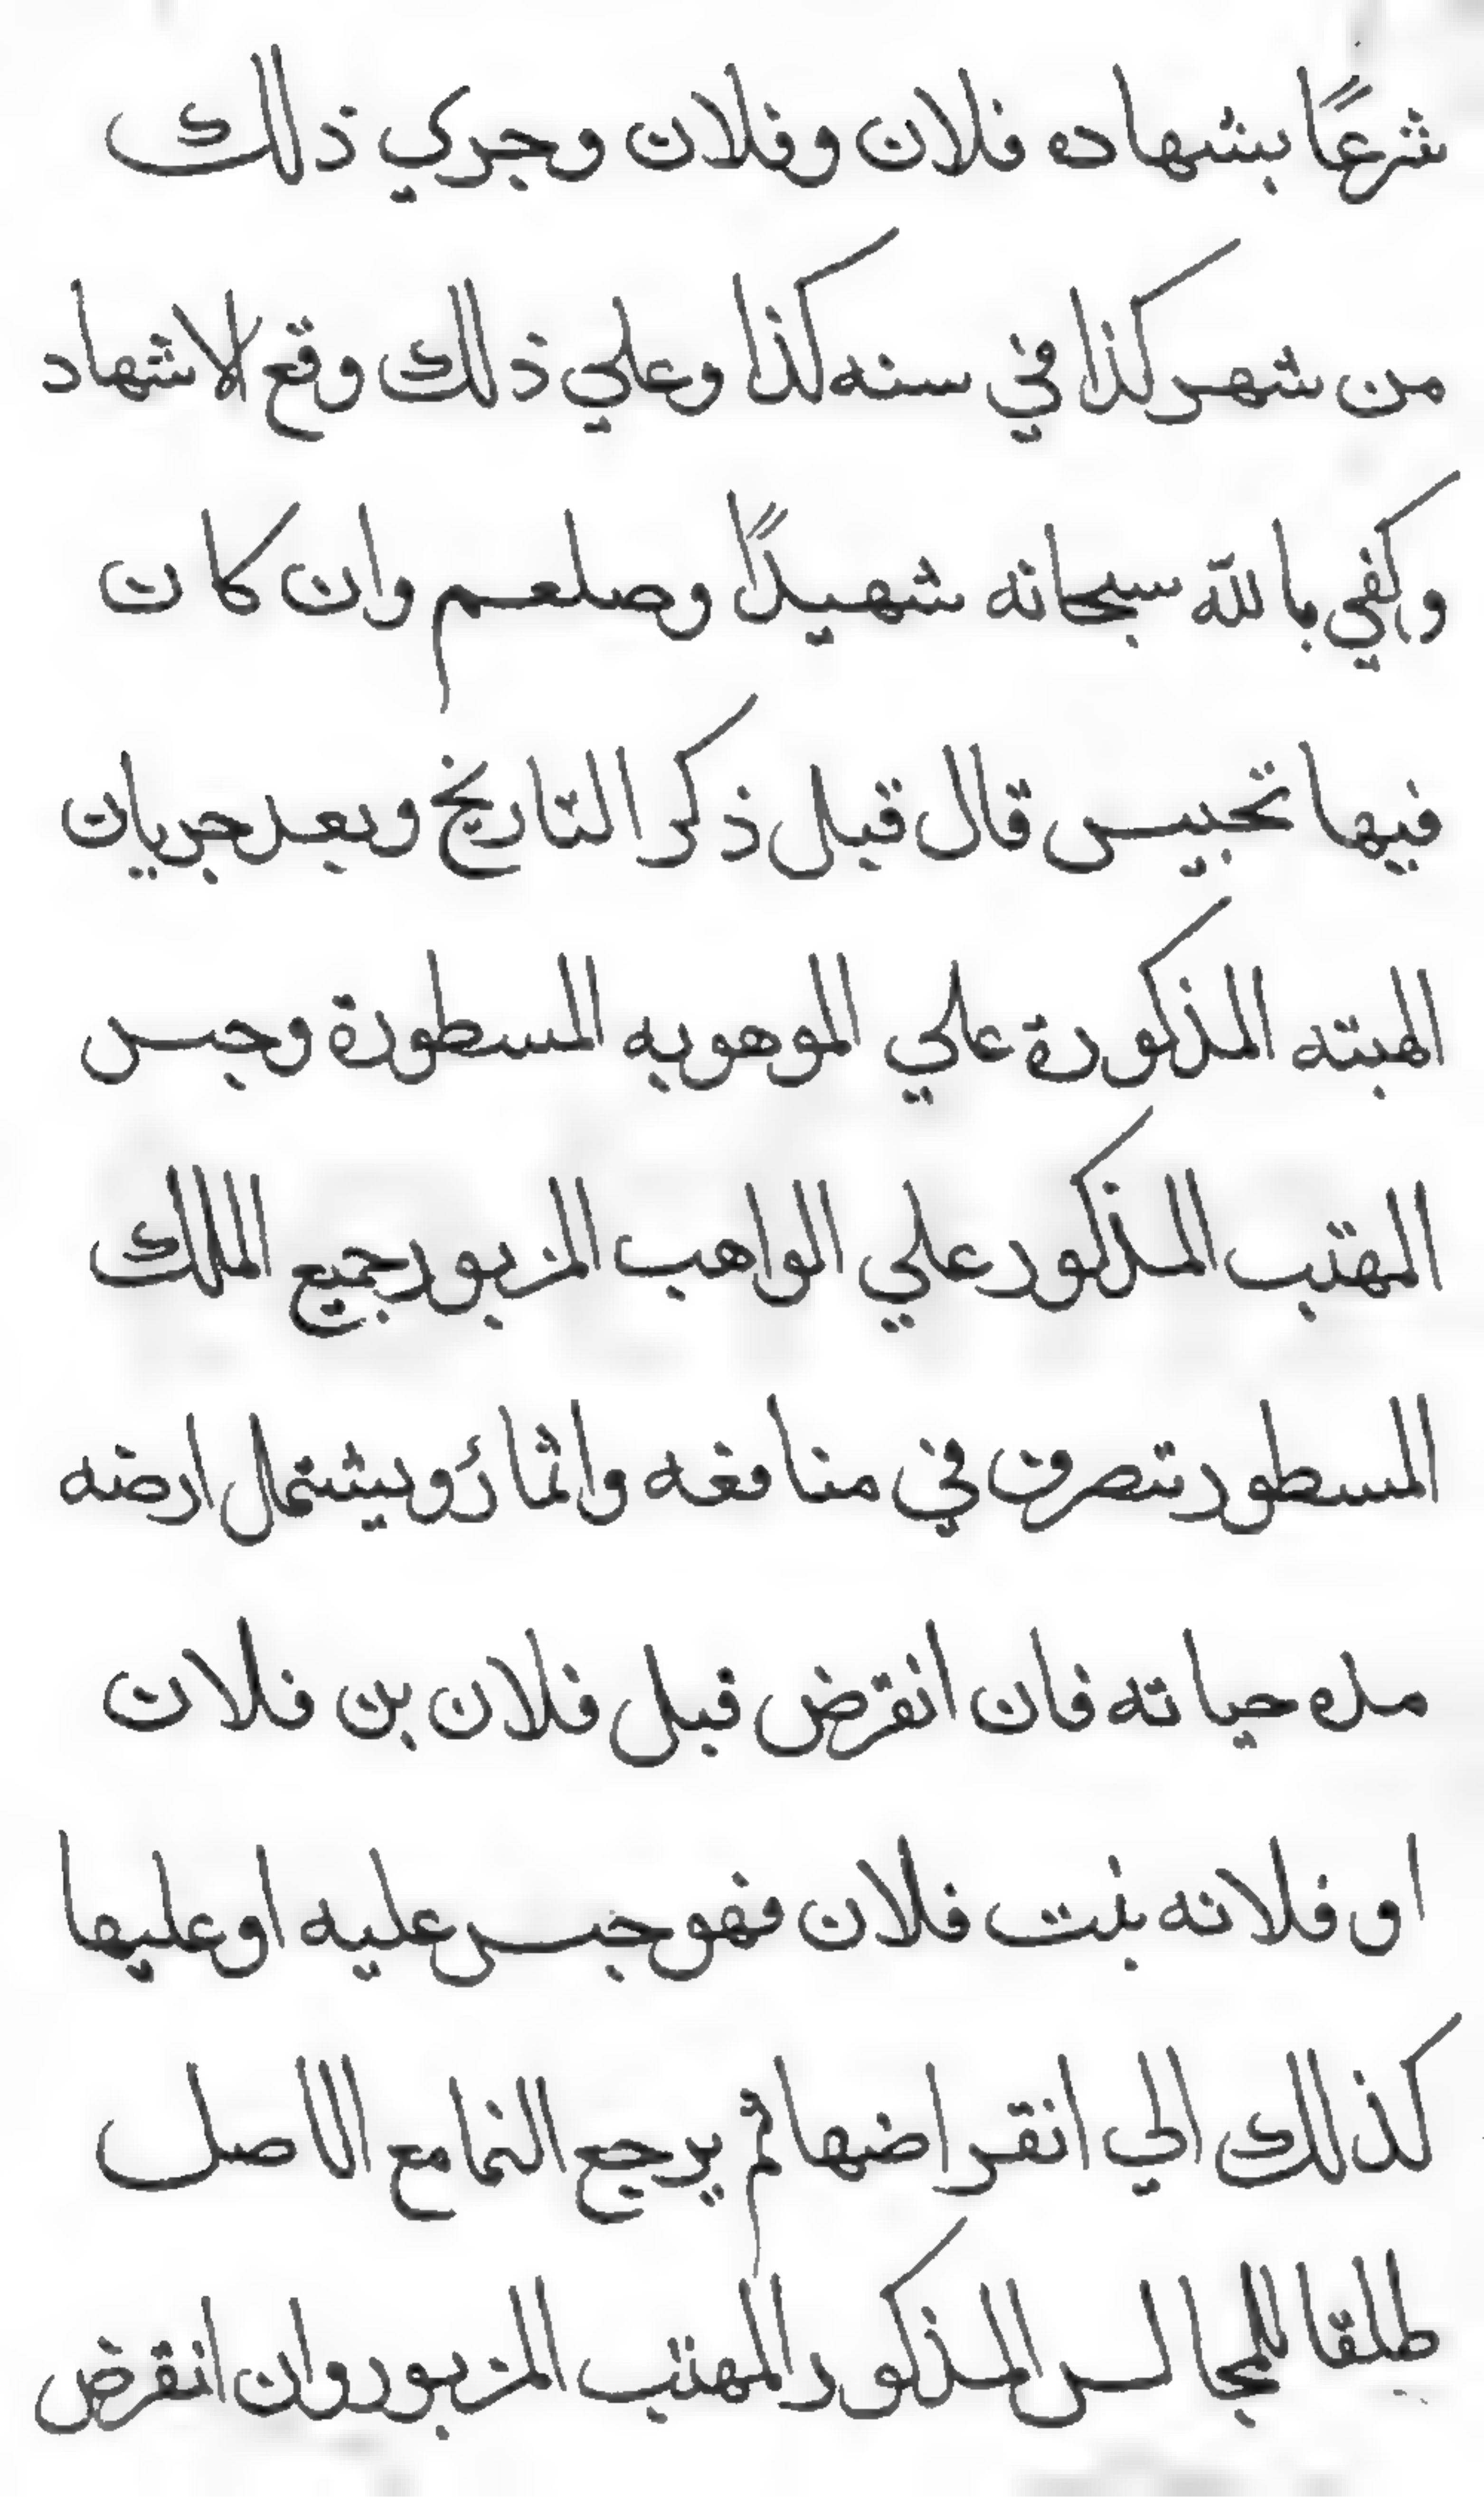 شرعًا بشهاده فلان وفلان وجري ذلك
من شهر كذا في سنه كذا وعلي ذلك وقع لاشهاد
وكفي بالله سبحانه شهيدًا وصلعم وان كان
فيها تحبيس قال قبل ذكر التاريخ وبعد جريان
الهبته المذكورة علي الموهوبه المسطورة وحبس
المهتب المذكور علي الواهب المزبور جميع الملك
المسطور تصرف في منافعه واثمارَ ويشتمل ارضه
مده حياته فان انقرض قبل فلان بن فلان
او فلانه بنت فلان فهو حبس عليه او عليها
كذلك الي انقراضها ثم يرجع النما مع الاصل
طلقا للمجالس المذكور المهتب المزبور وان انقرض